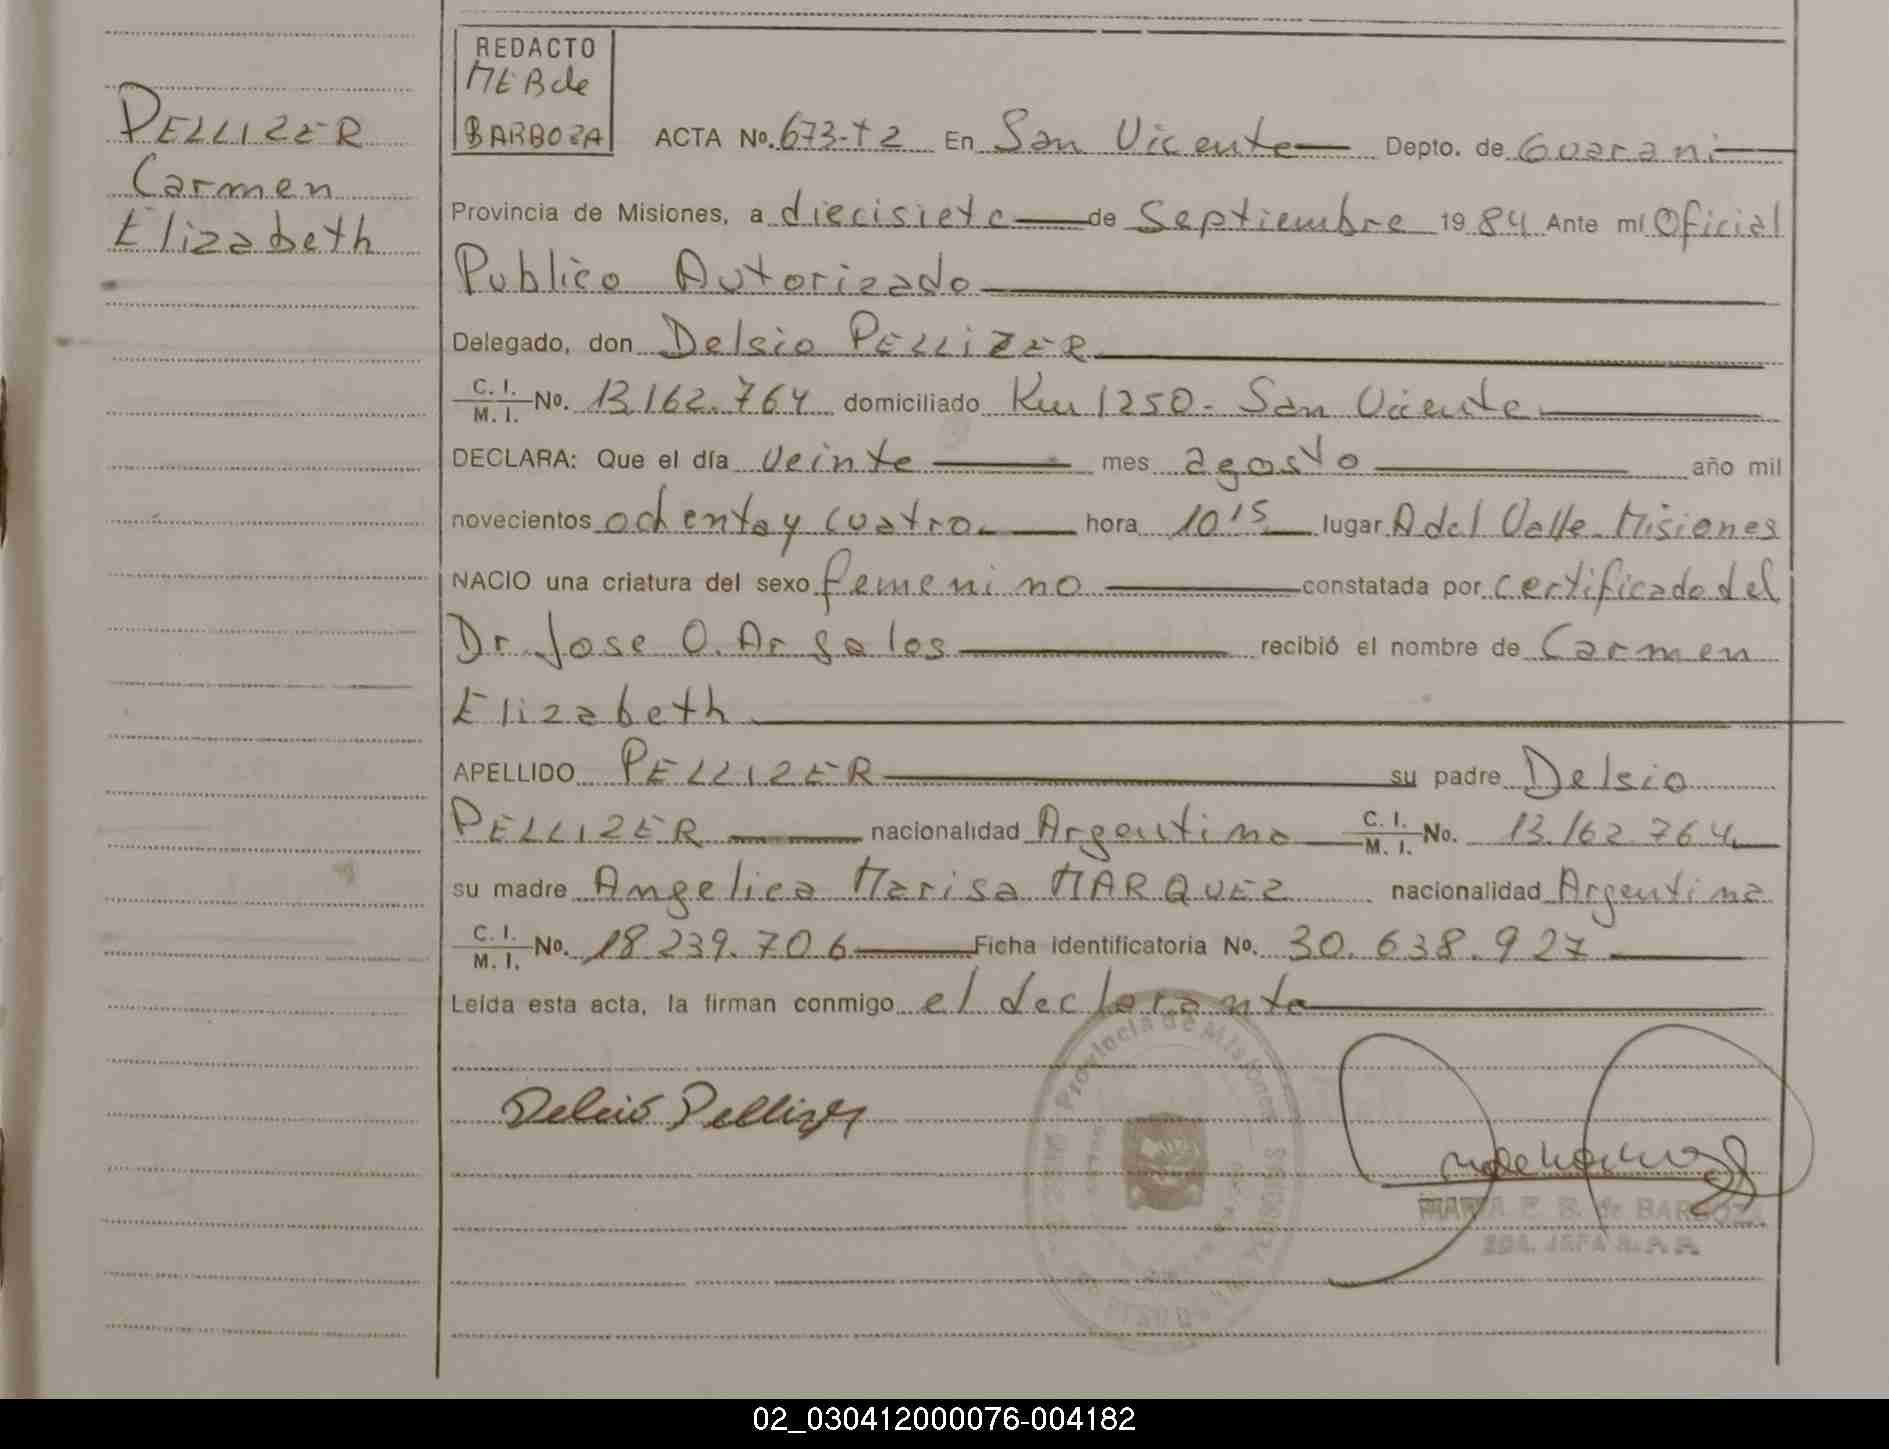 PELLIZER
Carmen
Elizabeth
REDACTO
MEB de
BARBOZA
ACTA No. 673-T2 En San Vicente Depto. de Guarani
Provincia de Misiones, a diecisiete de Septiembre 1984 Ante mí Oficial
Publico Autorizado
Delegado, don Delsio PELLIZER
C. I. / M. I. No. 13.162.764 domiciliado Km 1250 - San Vicente
DECLARA: Que el día veinte mes agosto año mil
novecientos ochenta y cuatro hora 10 15 lugar A del Valle Misiones
NACIO una criatura del sexo femenino constatada por certificado del
Dr. Jose O. Argalos recibió el nombre de Carmen
Elizabeth
APELLIDO PELLIZER su padre Delsio
PELLIZER nacionalidad Argentino C. I. / M. I. No. 13.162.764
su madre Angelica Marisa MARQUEZ nacionalidad Argentina
C. I. / M. I. No. 18.239.706 Ficha identificatoria No. 30.638.927
Leída esta acta, la firman conmigo el declarante
Provincia de Misiones
Delcio Pellizer
MARIA E. B. de BARBOZA
02_030412000076-004182